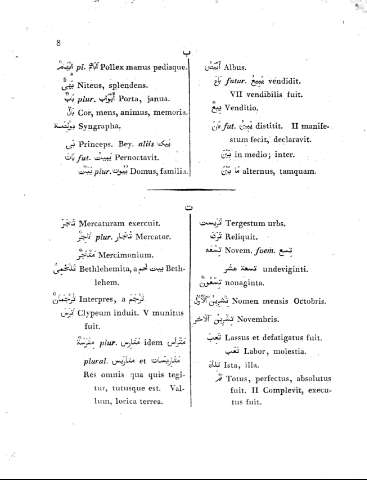 8
ب
pl. Pollex manus pedisque.
Niteus, splendens.
plur. Porta, janua.
Cor, mens, animus, memoria.
Syngrapha.
Princeps. Bey. aliis بيك
fut. يبيت Pernoctavit.
بيت plur. بيوت Domus, familia.
Albus.
futur. يبيع vendidit.
VII vendibilis fuit.
Venditio.
fut. distitit. II manife-
stum fecit, declaravit.
بين in medio; inter.
alternus, tamquam.
ت
تاجر Mercaturam exercuit.
تاجر plur. تجار Mercator.
Mercimonium.
Bethlehemita, a بيت لحم Beth-
lehem.
ترجمان Interpres, a ترجم
ترس Clypeum induit. V munitus
fuit.
plur. متارس idem متراس
plural. متاريس et
Res omnis qua quis tegi-
tur, tutusque est. Val-
lum, lorica terrea.
تريست Tergestum urbs.
ترك Reliquit.
تسعة Novem. foem. تسع
تسعة عشر undeviginti.
تسعون nonaginta.
تشرين الأول Nomen mensis Octobris.
تشرين الآخر Novembris.
تعب Lassus et defatigatus fuit.
تعب Labor, molestia.
Ista, illa.
تم Totus, perfectus, absolutus
fuit. II Complevit, execu-
tus fuit.